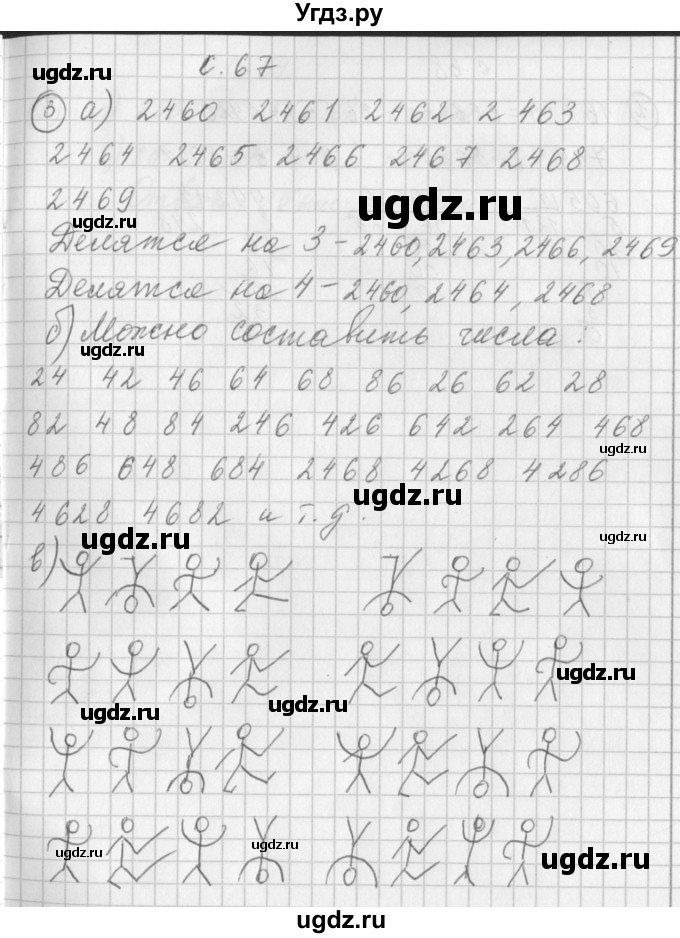 Угдз.ру
ugdz.ru
с. 67
3 а) 2460 2461 2462 2463
ugdz.ru
2464 2465 2466 2467 2468
2469
ugdz.ru
ugdz.ru
Делятся на 3 - 2460, 2463, 2466, 2469
Делятся на 4 - 2460, 2464, 2468
б) Можно составить числа:
ugdz.ru
24 42 46 64 68 86 26 62 28
82 48 84 246 426 642 264 468
ugdz.ru
486 648 684 2468 4268 4286
ugdz.ru
4628 4682 и т.д.
ugdz.ru
ugdz.ru
в)
ugdz.ru
ugdz.ru
ugdz.ru
ugdz.ru
ugdz.ru
ugdz.ru
ugdz.ru
ugdz.ru